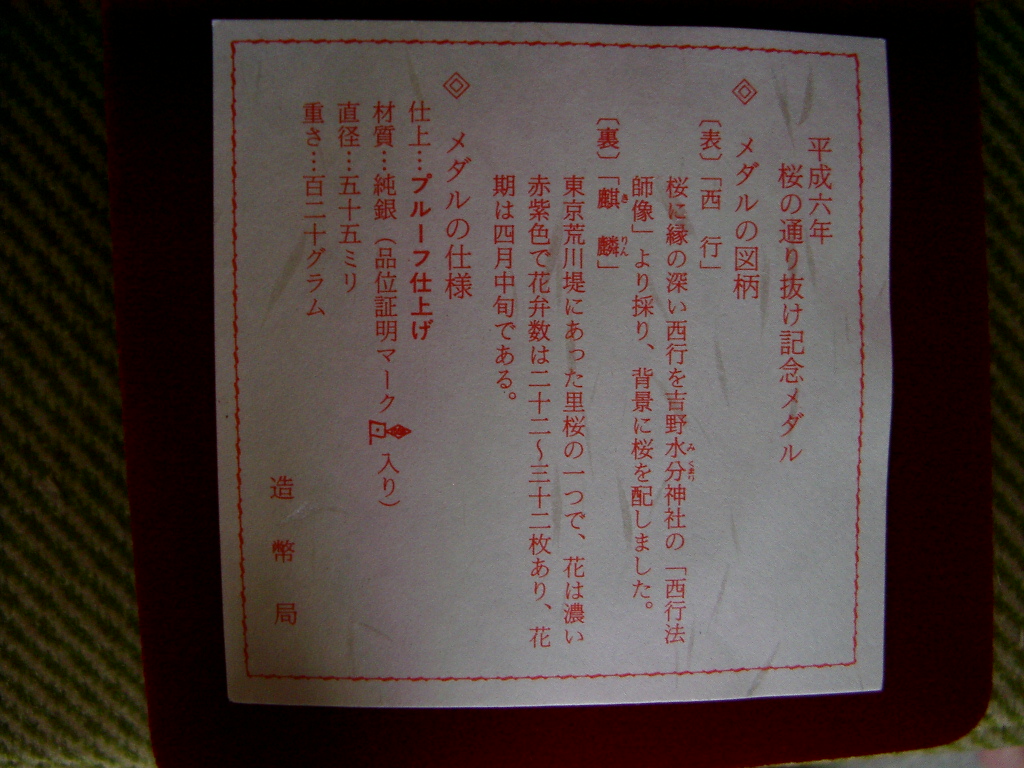 平成六年
桜の通り抜け記念メダル
◈ メダルの図柄
〔表〕「西　行」
桜に縁の深い西行を吉野水分神社の「西行法
師像」より採り、背景に桜を配しました。
〔裏〕「麒麟」
きりん
東京荒川堤にあった里桜の一つで、花は濃い
赤紫色で花弁数は二十二～三十二枚あり、花
期は四月中旬である。
◈ メダルの仕様
仕上…プルーフ仕上げ
材質…純銀（品位証明マーク 入り）
直径…五十五ミリ
重さ…百二十グラム
造幣局